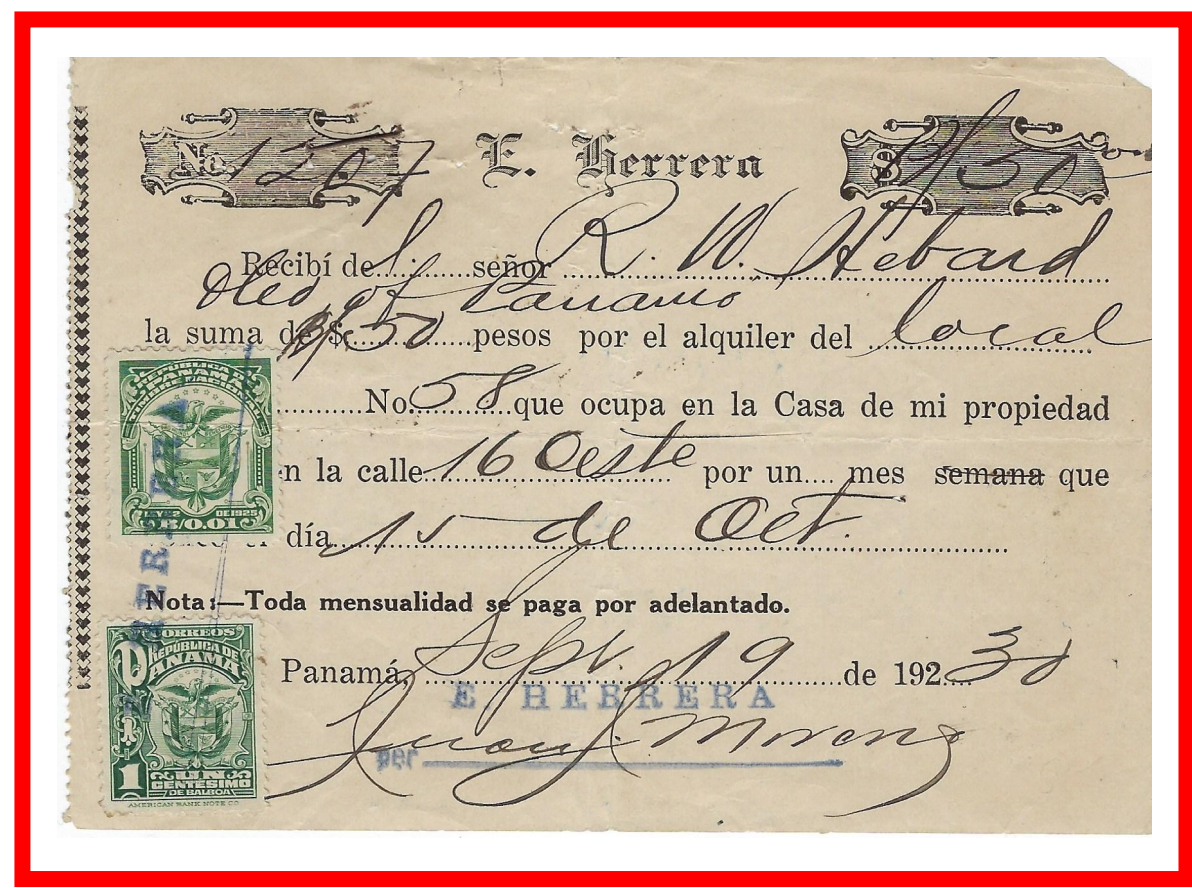 No. 1207 E. Herrera $ 50
Recibí del señor R. W. Hebard
of Panama
la suma de $ 50 pesos por el alquiler del local
No. 58 que ocupa en la Casa de mi propiedad
n la calle 16 Oeste por un mes semana que
día 15 de Oct.
Nota:—Toda mensualidad se paga por adelantado.
Panamá, Sept. 19 de 192 30
E. HERRERA
per Juan J. Moreno
REPÚBLICA DE
PANAMA
TIMBRE NACIONAL
LEY 52 DE 1925
B/0.01
CORREOS
REPÚBLICA DE
PANAMA
1 UN
CENTESIMO
DE BALBOA
AMERICAN BANK NOTE CO